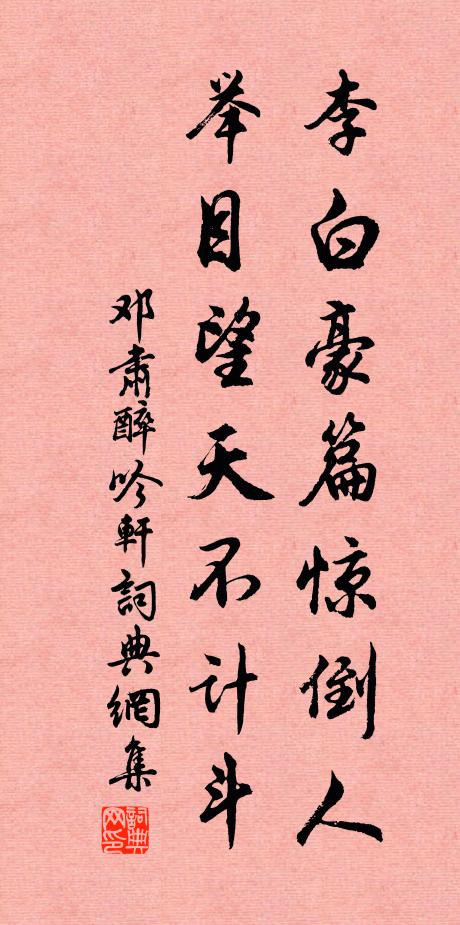 李白豪篇惊倒人
举目望天不计斗
邓肃醉吟軒詞典網集
詞典网印